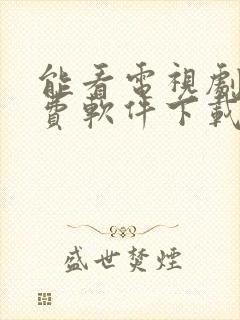 能看電視劇
費軟件下載
盛世焚煙